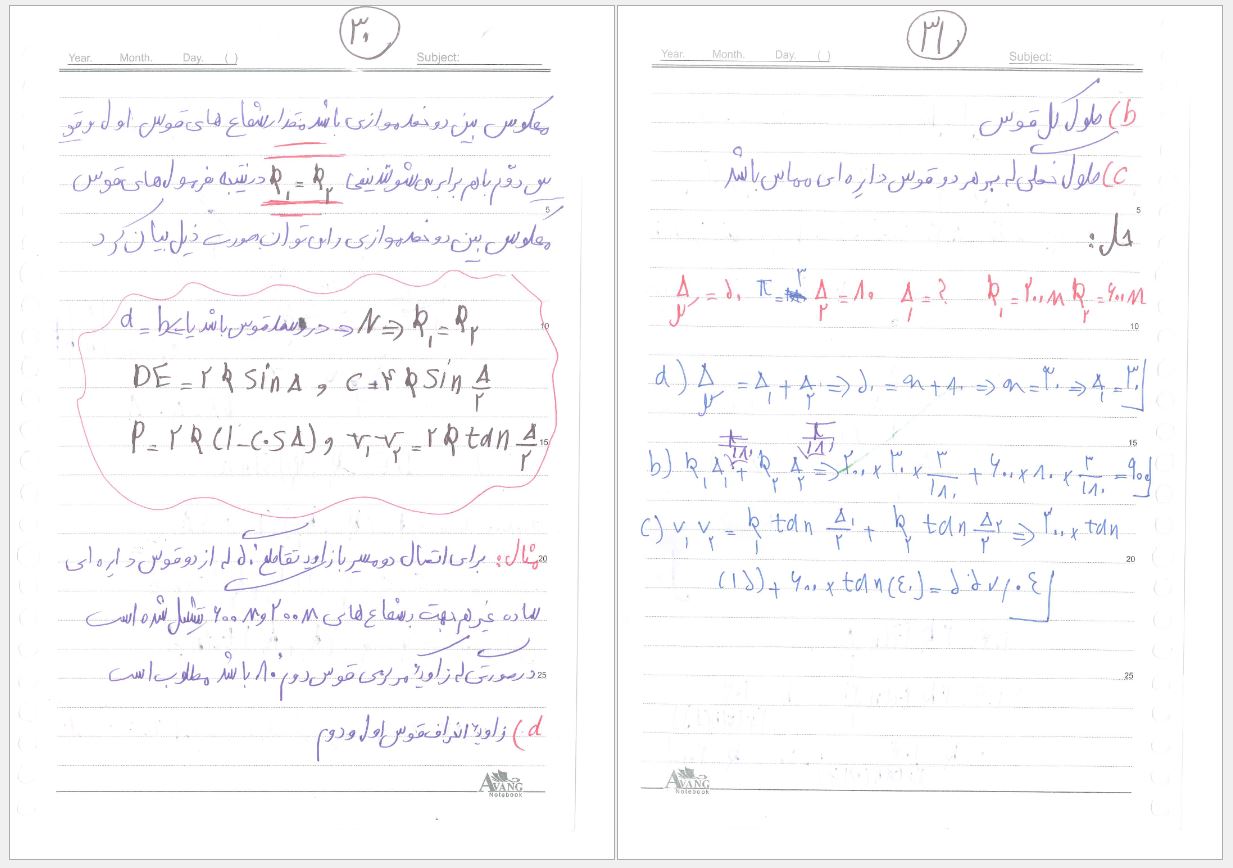 ۳۰
Year. Month. Day. ( ) Subject:
معکوس بین دو خط موازی باشد مقدار شعاع های قوس اول و قو
س دوّم باهم برابر می شوند یعنی R₁ = R₂ در نتیجه فرمول های قوس
5
معکوس بین دو خط موازی را می توان بصورت ذیل بیان کرد
10
N => R₁ = R₂
DE = ۲R Sin Δ , C = ۴R Sin Δ/۲
P = ۲R (1 - Cos Δ) , V₁-V₂ = ۲R tan Δ/۲
15
مثال: برای اتصال دو مسیر با زاویه تقاطع ۵۰° که از دو قوس دایره ای
20
ساده غیر هم جهت بشعاع های ۲۰۰m و ۶۰۰m تشکیل شده است
درصورتی که زاویۀ مرکزی قوس دوم ۸۰° باشد مطلوب است
25
a) زاویۀ انحراف قوس اول و دوم
AVANG
Notebook
۳۱
Year. Month. Day. ( ) Subject:
b) طول کل قوس
c) طول خطی که بر هر دو قوس دایره ای مماس باشد
5
حل:
Δ = ۵۰ π = ۳ Δ₂ = ۸۰ Δ₁ = ? R₁ = ۲۰۰m R₂ = ۶۰۰m
10
a) Δ = Δ₁ + Δ₂ => ۵۰ =
15
b) R₁Δ₁ π/۱۸۰ + R₂Δ₂ π/۱۸۰ => ۲۰۰ × ۳۰ × ۳/۱۸۰ + ۶۰۰ × ۸۰ × ۳/۱۸۰ = ۹۰۰
c) V₁V₂ = R₁ tan Δ₁/۲ + R₂ tan Δ₂/۲ => ۲۰۰ × tan
20
(۱۵) + ۶۰۰ × tan (٤۰) = ۵۵۷/۰٤
25
AVANG
Notebook